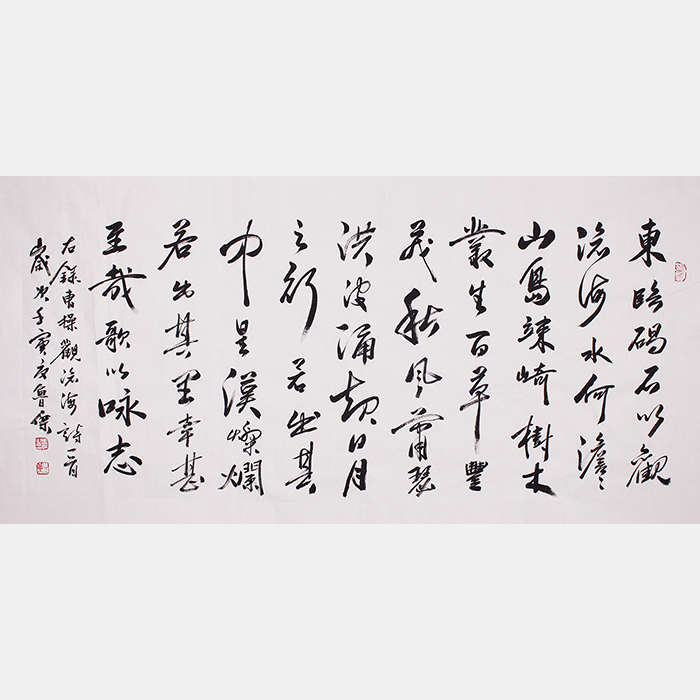 東臨碣石以觀
滄海水何澹〻
山島竦崎樹木
叢生百草豐
茂秋風蕭瑟
洪波涌起日月
之行若出其
中星漢燦爛
若出其里幸甚
至哉歌以咏志
右錄曹操觀滄海詩一首
歲次壬寅夏魯傑